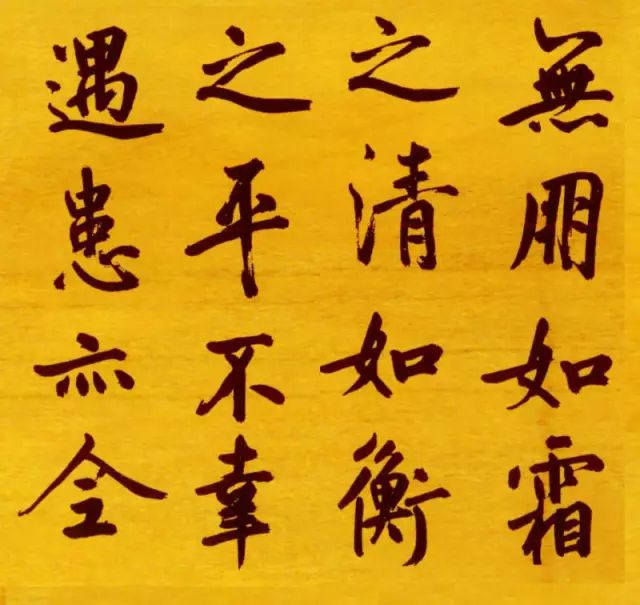 無朋如霜
之清如衡
之平不幸
遇患亦全